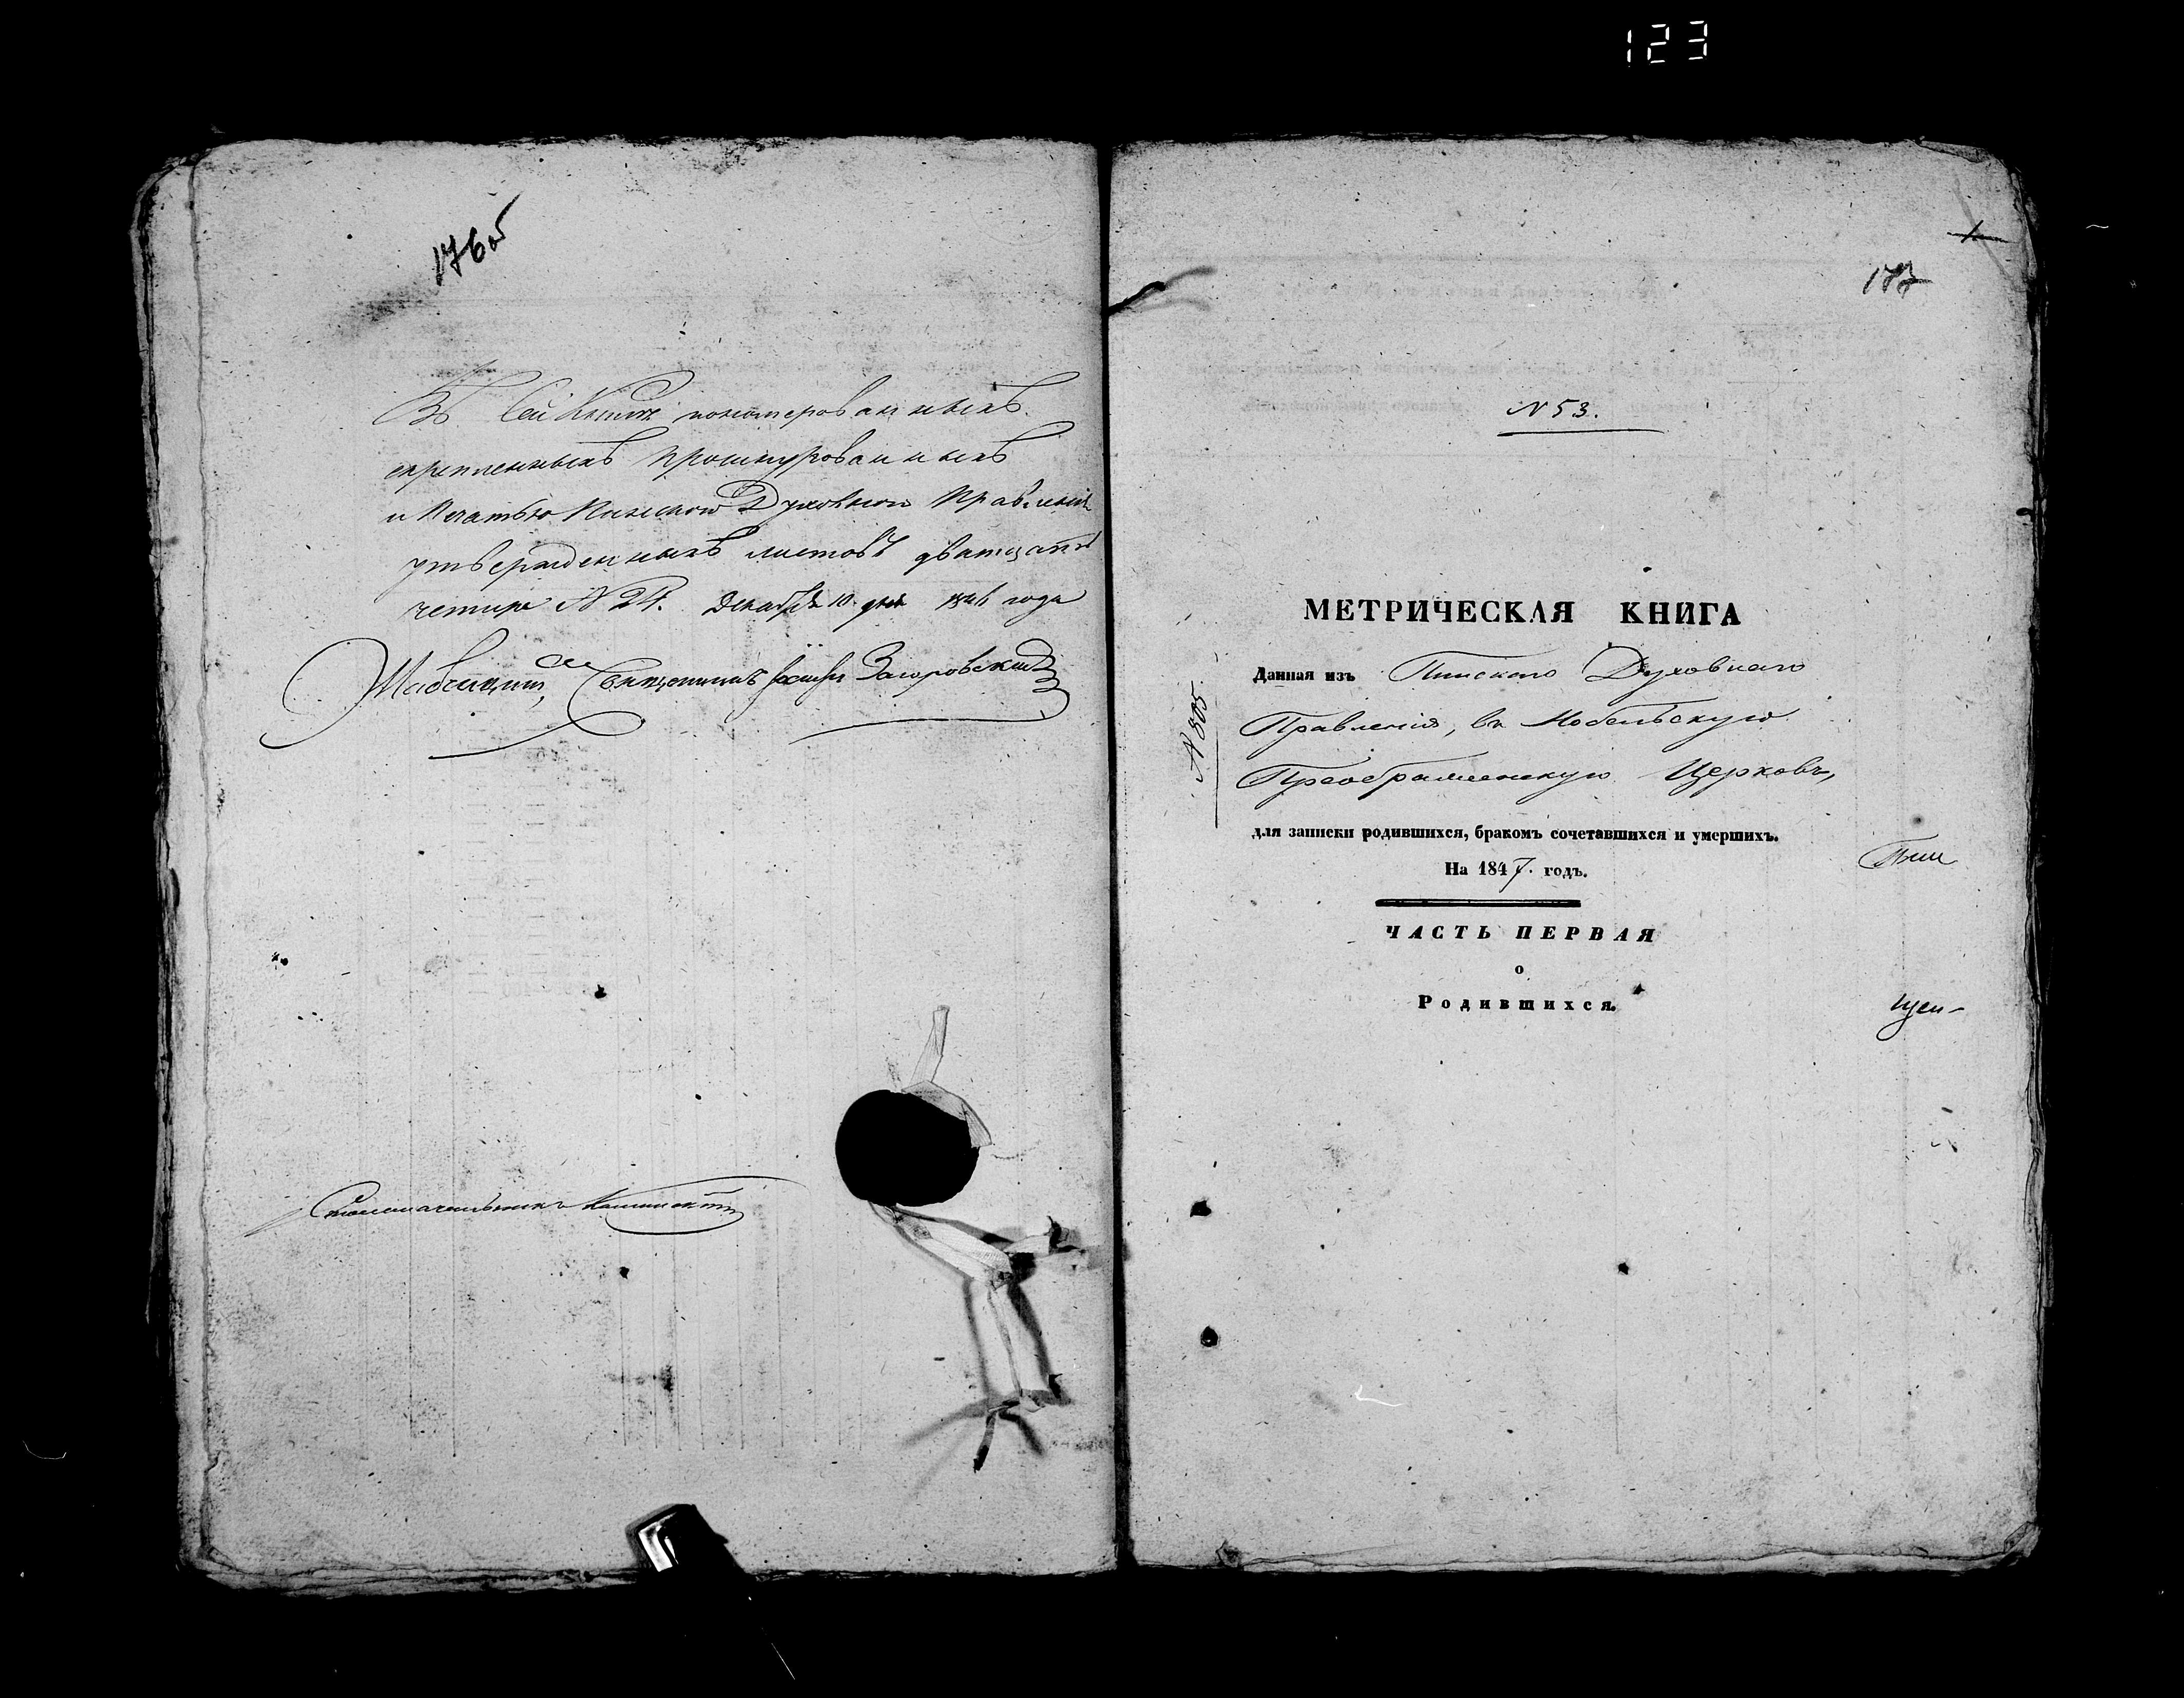 123
176об
Въ сей Книге пономерованныхъ
скрепленныхъ прошнурованныхъ
и Печатью Пинского Духовного Правления
утвержденныхъ листовъ дватцать
четире N 24. Декабря 10 дня 1846 года
Священникъ Загоровский
Столоначальникъ
1
177
N 53.
МЕТРИЧЕСКАЯ КНИГА
Данная изъ Пинскаго Духовнаго
Правленія, въ Нобельскую
Преображенскую Церковь,
N 805.
для записки родившихся, бракомъ сочетавшихся и умершихъ.
На 1847. годъ.
ЧАСТЬ ПЕРВАЯ
о
Родившихся.
Пин
щен-